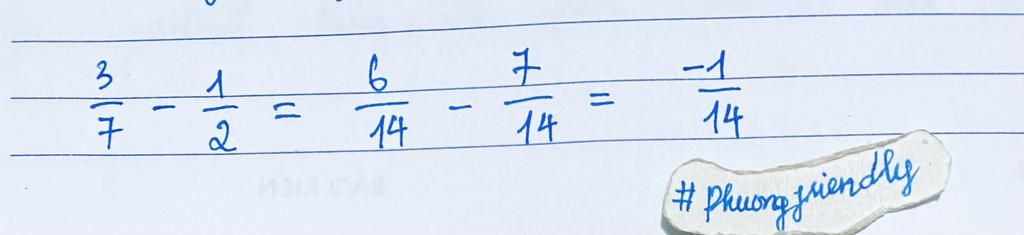 3/7 - 1/2 = 6/14 - 7/14 = -1/14
# Phuongfriendly